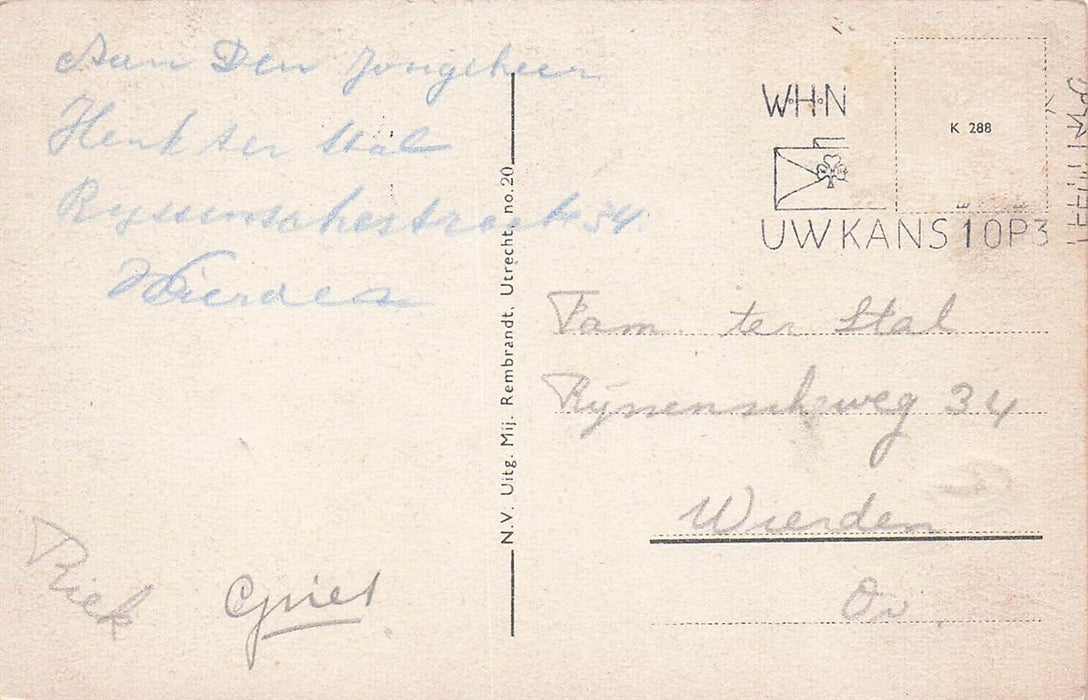 Aan Den Jongeheer
Henk ter Stal
Ryssenschestraat 34.
Wierden
Riek
Griet
N.V. Uitg. Mij. Rembrandt, Utrecht, no. 20
W.H.N
K 288
UW KANS 10P3
Fam. ter Stal
Ryssenscheweg 34
Wierden
Ov.